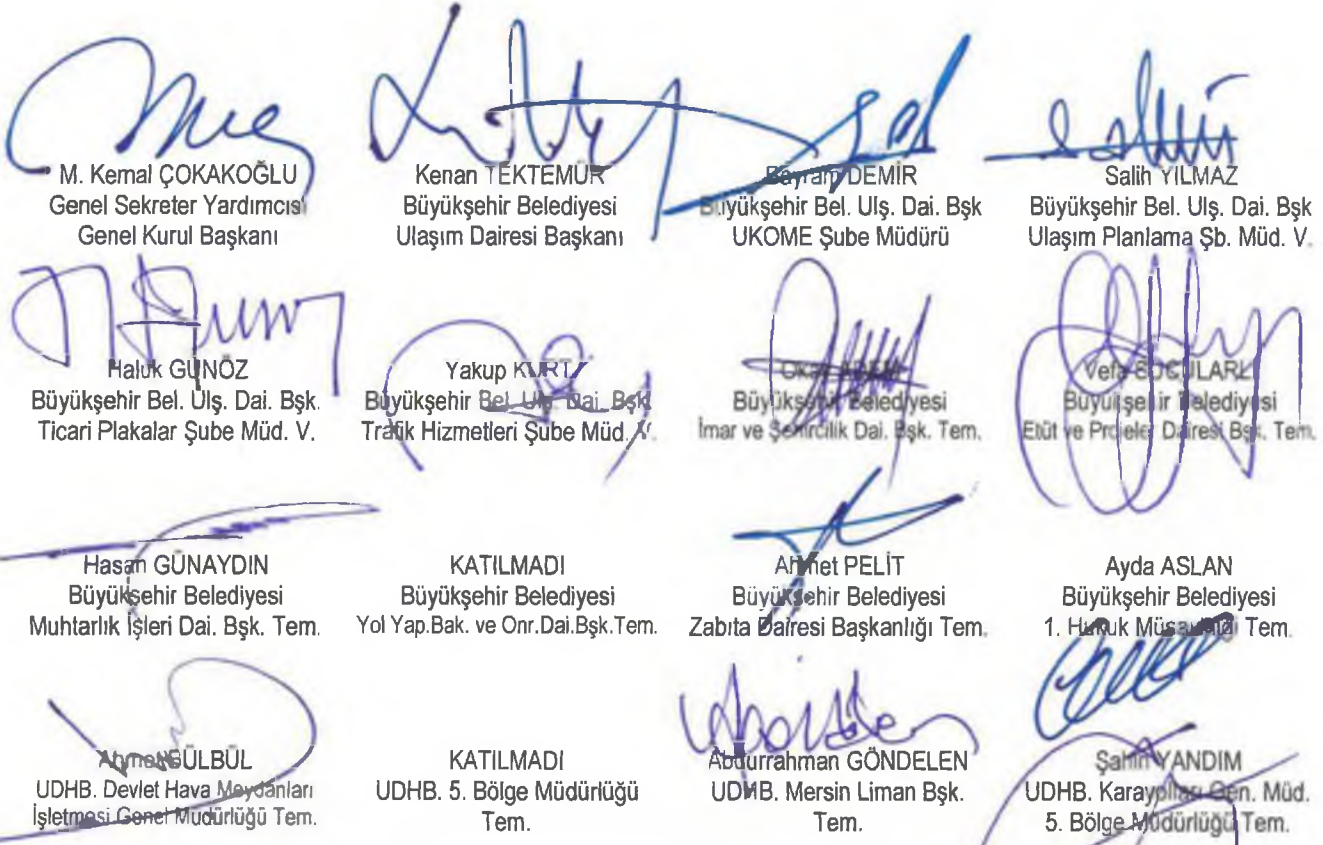 M. Kemal ÇOKAKOĞLU
Genel Sekreter Yardımcısı
Genel Kurul Başkanı
Kenan TEKTEMUR
Büyükşehir Belediyesi
Ulaşım Dairesi Başkanı
Bayram DEMİR
Büyükşehir Bel. Ulş. Dai. Bşk
UKOME Şube Müdürü
Salih YILMAZ
Büyükşehir Bel. Ulş. Dai. Bşk
Ulaşım Planlama Şb. Müd. V.
Haluk GÜNÖZ
Büyükşehir Bel. Ulş. Dai. Bşk.
Ticari Plakalar Şube Müd. V.
Yakup KURT
Büyükşehir Bel. Ulş. Dai. Bşk.
Trafik Hizmetleri Şube Müd. V.
Büyükşehir Belediyesi
İmar ve Şehircilik Dai. Bşk. Tem.
Vefa
Büyükşehir Belediyesi
Etüt ve Projeler Dairesi Bşk. Tem.
Hasan GÜNAYDIN
Büyükşehir Belediyesi
Muhtarlık İşleri Dai. Bşk. Tem.
KATILMADI
Büyükşehir Belediyesi
Yol Yap.Bak. ve Onr.Dai.Bşk.Tem.
Ahmet PELİT
Büyükşehir Belediyesi
Zabıta Dairesi Başkanlığı Tem.
Ayda ASLAN
Büyükşehir Belediyesi
1. Hukuk Müşavirliği Tem.
Ahmet GÜLBÜL
UDHB. Devlet Hava Meydanları
İşletmesi Genel Müdürlüğü Tem.
KATILMADI
UDHB. 5. Bölge Müdürlüğü
Tem.
Abdurrahman GÖNDELEN
UDHB. Mersin Liman Bşk.
Tem.
Şahin YANDIM
UDHB. Karayolları Gen. Müd.
5. Bölge Müdürlüğü Tem.